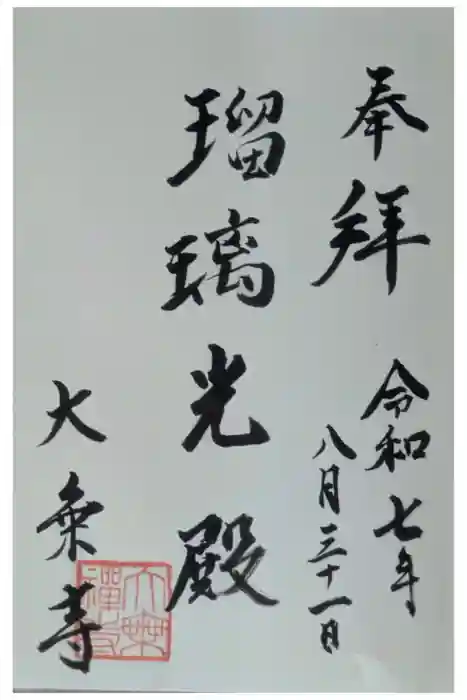 奉拝
令和七年
八月三十一日
瑠璃光殿
大乗寺